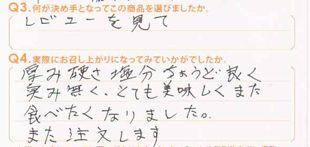 Q3.何が決め手となってこの商品を選びましたか。
レビューを見て
Q4.実際にお召し上がりになってみていかがでしたか。
厚み硬さ塩分ちょうど良く
臭み無く、とても美味しくまた
食べたくなりました。
また注文します